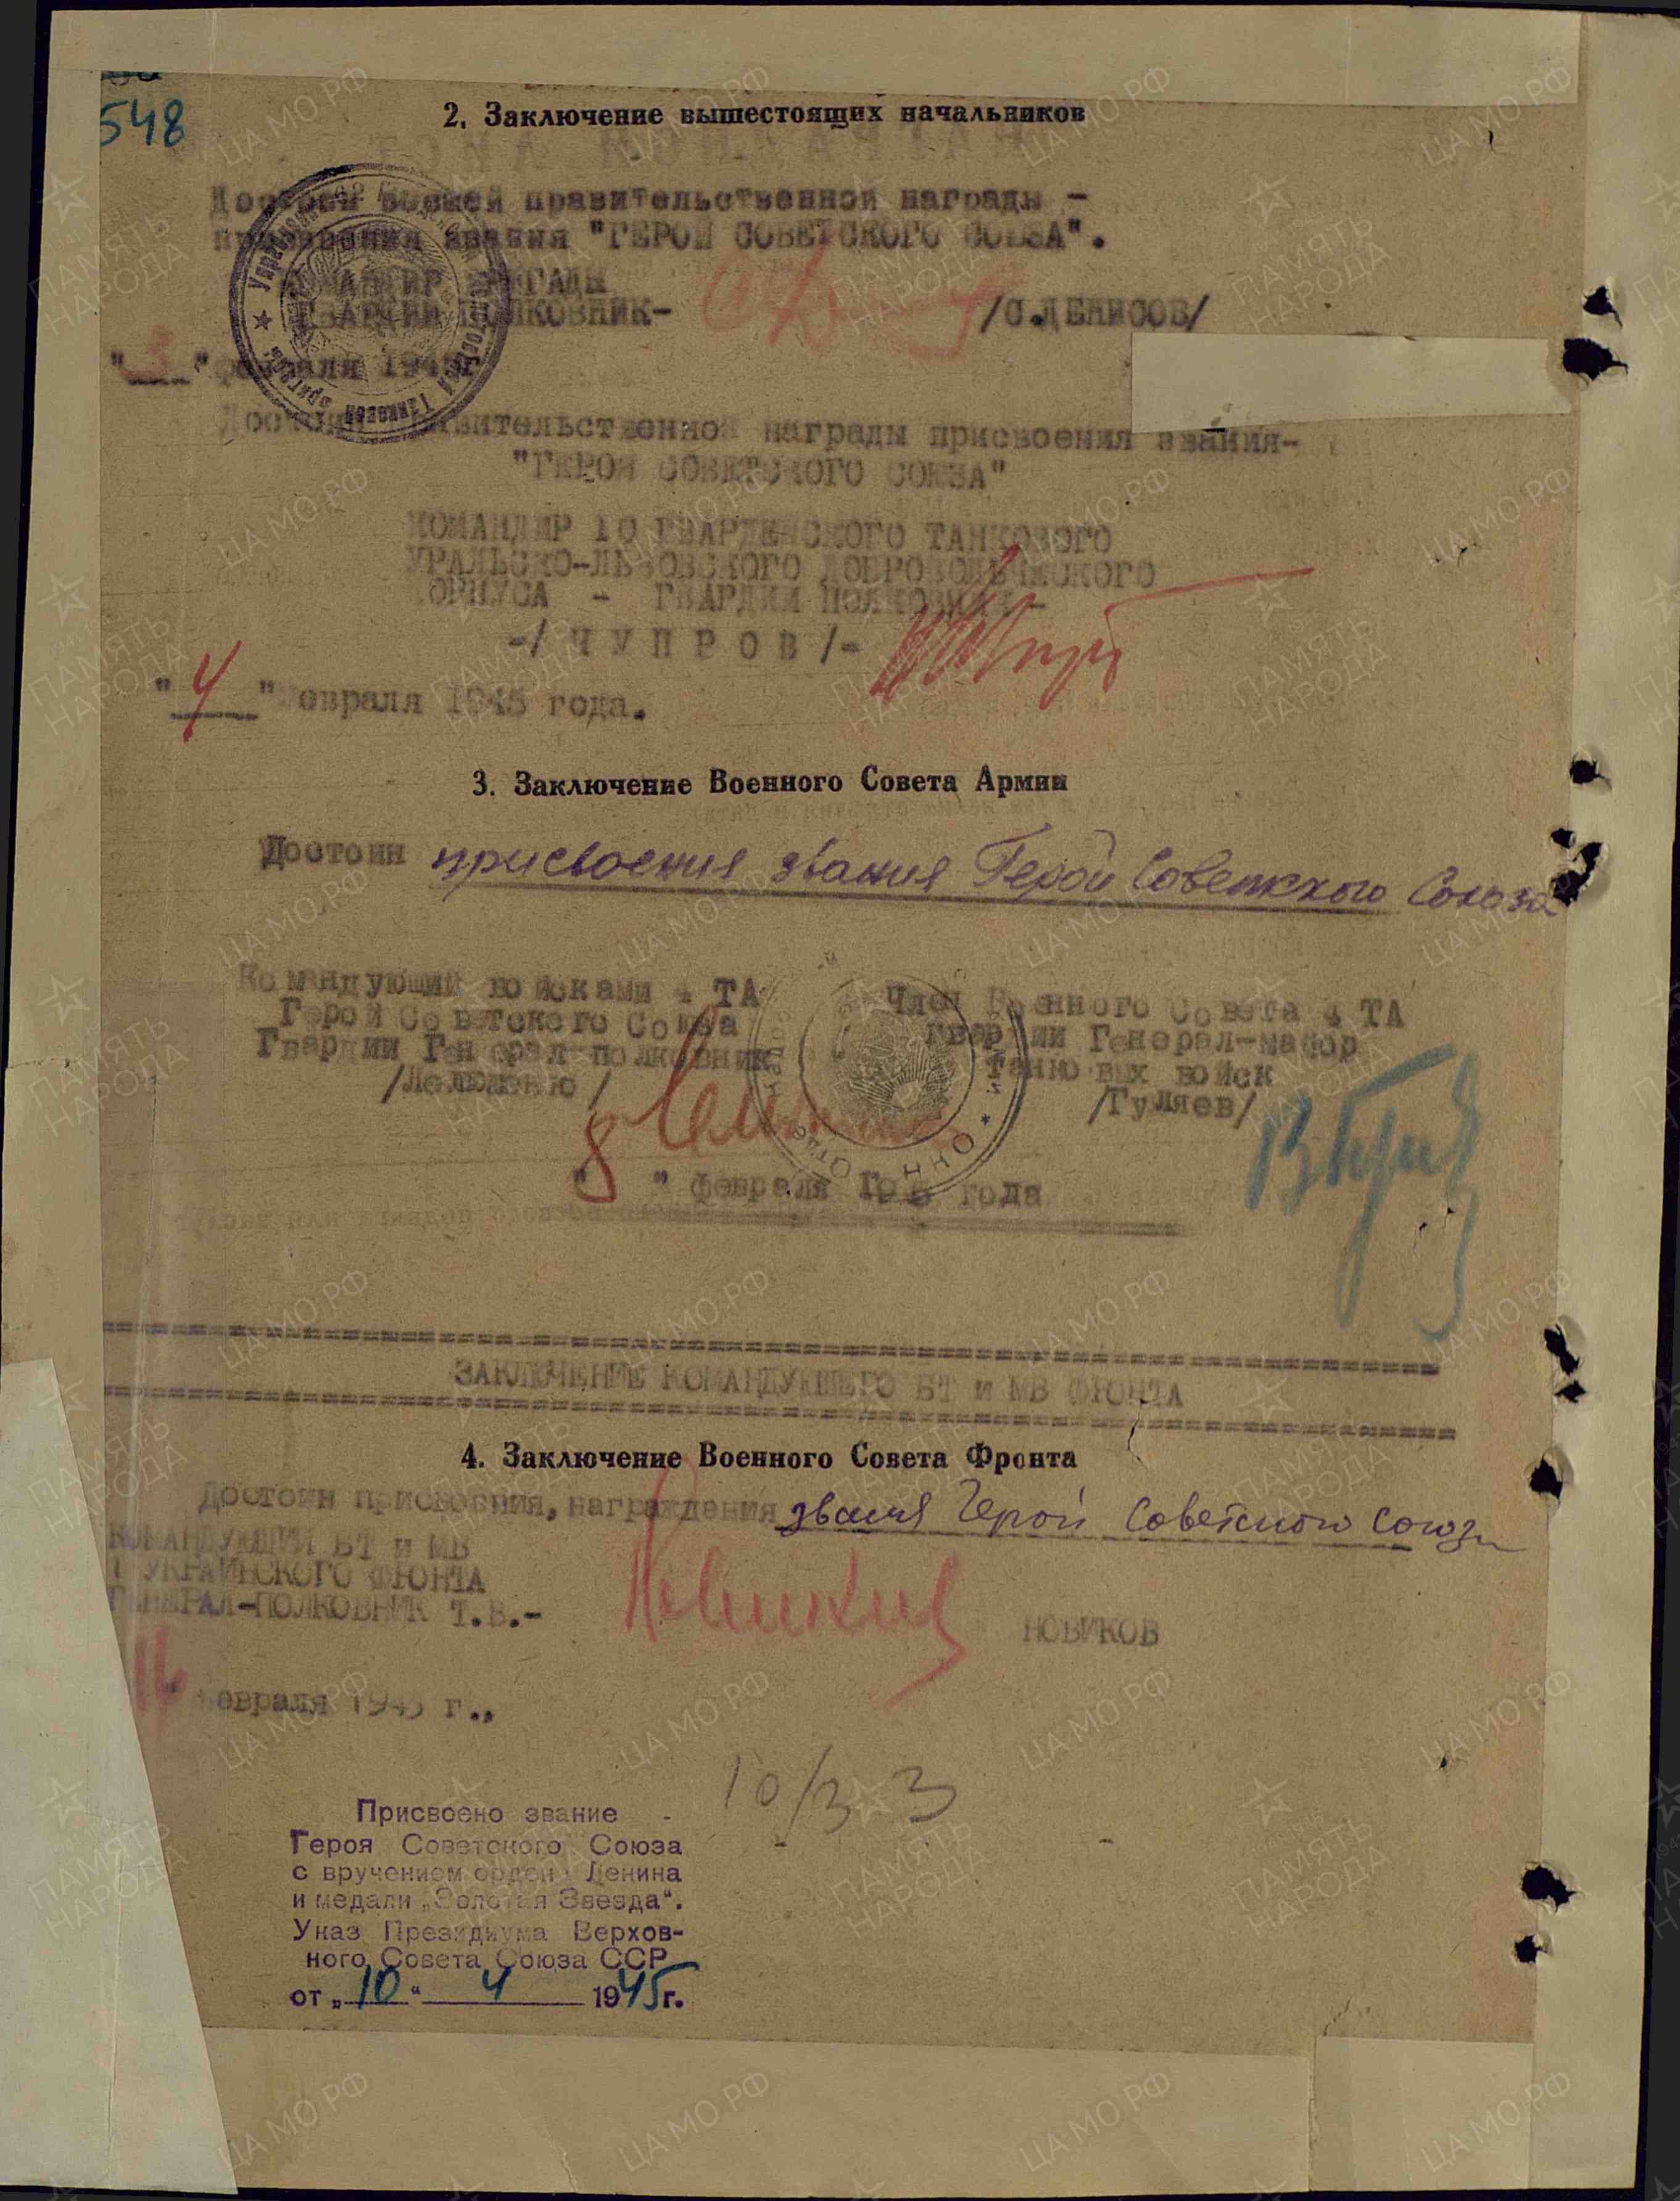 548
2. Заключение вышестоящих начальников
Достоин высшей правительственной награды -
присвоения звания "ГЕРОЙ СОВЕТСКОГО СОЮЗА".
КОМАНДИР БРИГАДЫ
ГВАРДИИ ПОЛКОВНИК-
/С.ДЕНИСОВ/
"3" февраля 1945г
Достоин правительственной награды присвоения звания-
"ГЕРОЯ СОВЕТСКОГО СОЮЗА"
КОМАНДИР 10 ГВАРДЕЙСКОГО ТАНКОВОГО
УРАЛЬСКО-ЛЬВОВСКОГО ДОБРОВОЛЬЧЕСКОГО
КОРПУСА - ГВАРДИИ ПОЛКОВНИК-
-/ЧУПРОВ/-
"4" февраля 1945 года.
3. Заключение Военного Совета Армии
Достоин присвоения звания Герой Советского Союза
Командующий войсками 4 ТА
Герой Советского Союза
Гвардии Генерал-полковник
/Лелюшенко/
Член Военного Совета 4 ТА
Гвардии Генерал-майор
танковых войск
/Гуляев/
"8" февраля 1945 года
ЗАКЛЮЧЕНИЕ КОМАНДУЮЩЕГО БТ и МВ ФРОНТА
4. Заключение Военного Совета Фронта
Достоин присвоения, награждения звания Герой Советского Союза
КОМАНДУЮЩИЙ БТ и МВ
1 УКРАИНСКОГО ФРОНТА
ГЕНЕРАЛ-ПОЛКОВНИК Т.В.-
НОВИКОВ
16 февраля 1945 г.,
10/3 3
Присвоено звание -
Героя Советского Союза
с вручением орден Ленина
и медали „Золотая Звезда“.
Указ Президиума Верхов-
ного Совета Союза ССР
от „10“ 4 1945г.
ЦА МО РФ
ПАМЯТЬ НАРОДА